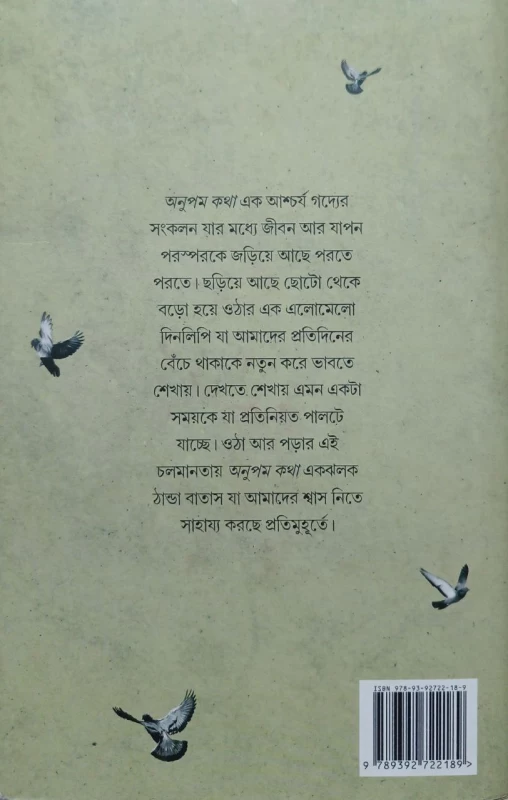 অনুপম কথা এক আশ্চর্য গদ্যের
সংকলন যার মধ্যে জীবন আর যাপন
পরস্পরকে জড়িয়ে আছে পরতে
পরতে। ছড়িয়ে আছে ছোটো থেকে
বড়ো হয়ে ওঠার এক এলোমেলো
দিনলিপি যা আমাদের প্রতিদিনের
বেঁচে থাকাকে নতুন করে ভাবতে
শেখায়। দেখতে শেখায় এমন একটা
সময়কে যা প্রতিনিয়ত পালটে
যাচ্ছে। ওঠা আর পড়ার এই
চলমানতায় অনুপম কথা একঝলক
ঠান্ডা বাতাস যা আমাদের শ্বাস নিতে
সাহায্য করছে প্রতিমুহূর্তে।
ISBN 978-93-92722-18-9
9 789392 722189>